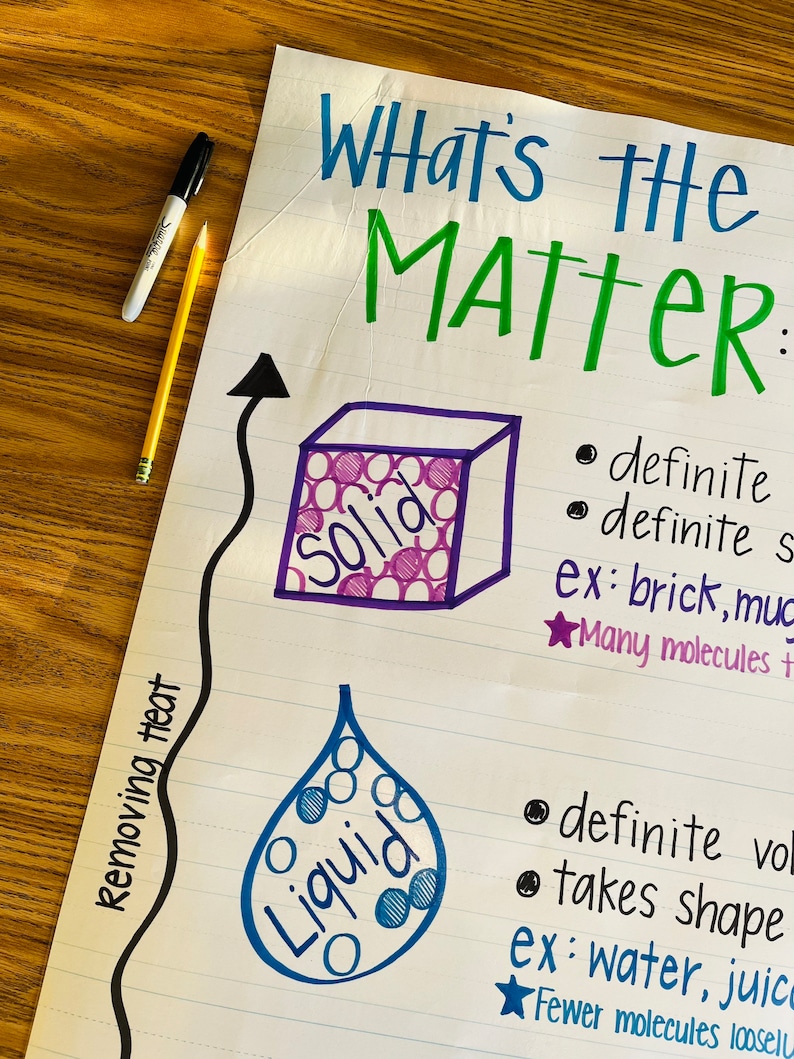 What's the
MATTER:
SHARPIE
Solid
• definite
• definite s
ex: brick, mug
★Many molecules t
Removing Heat
Liquid
• definite vol
• takes shape
ex: water, juic
★Fewer molecules loosely